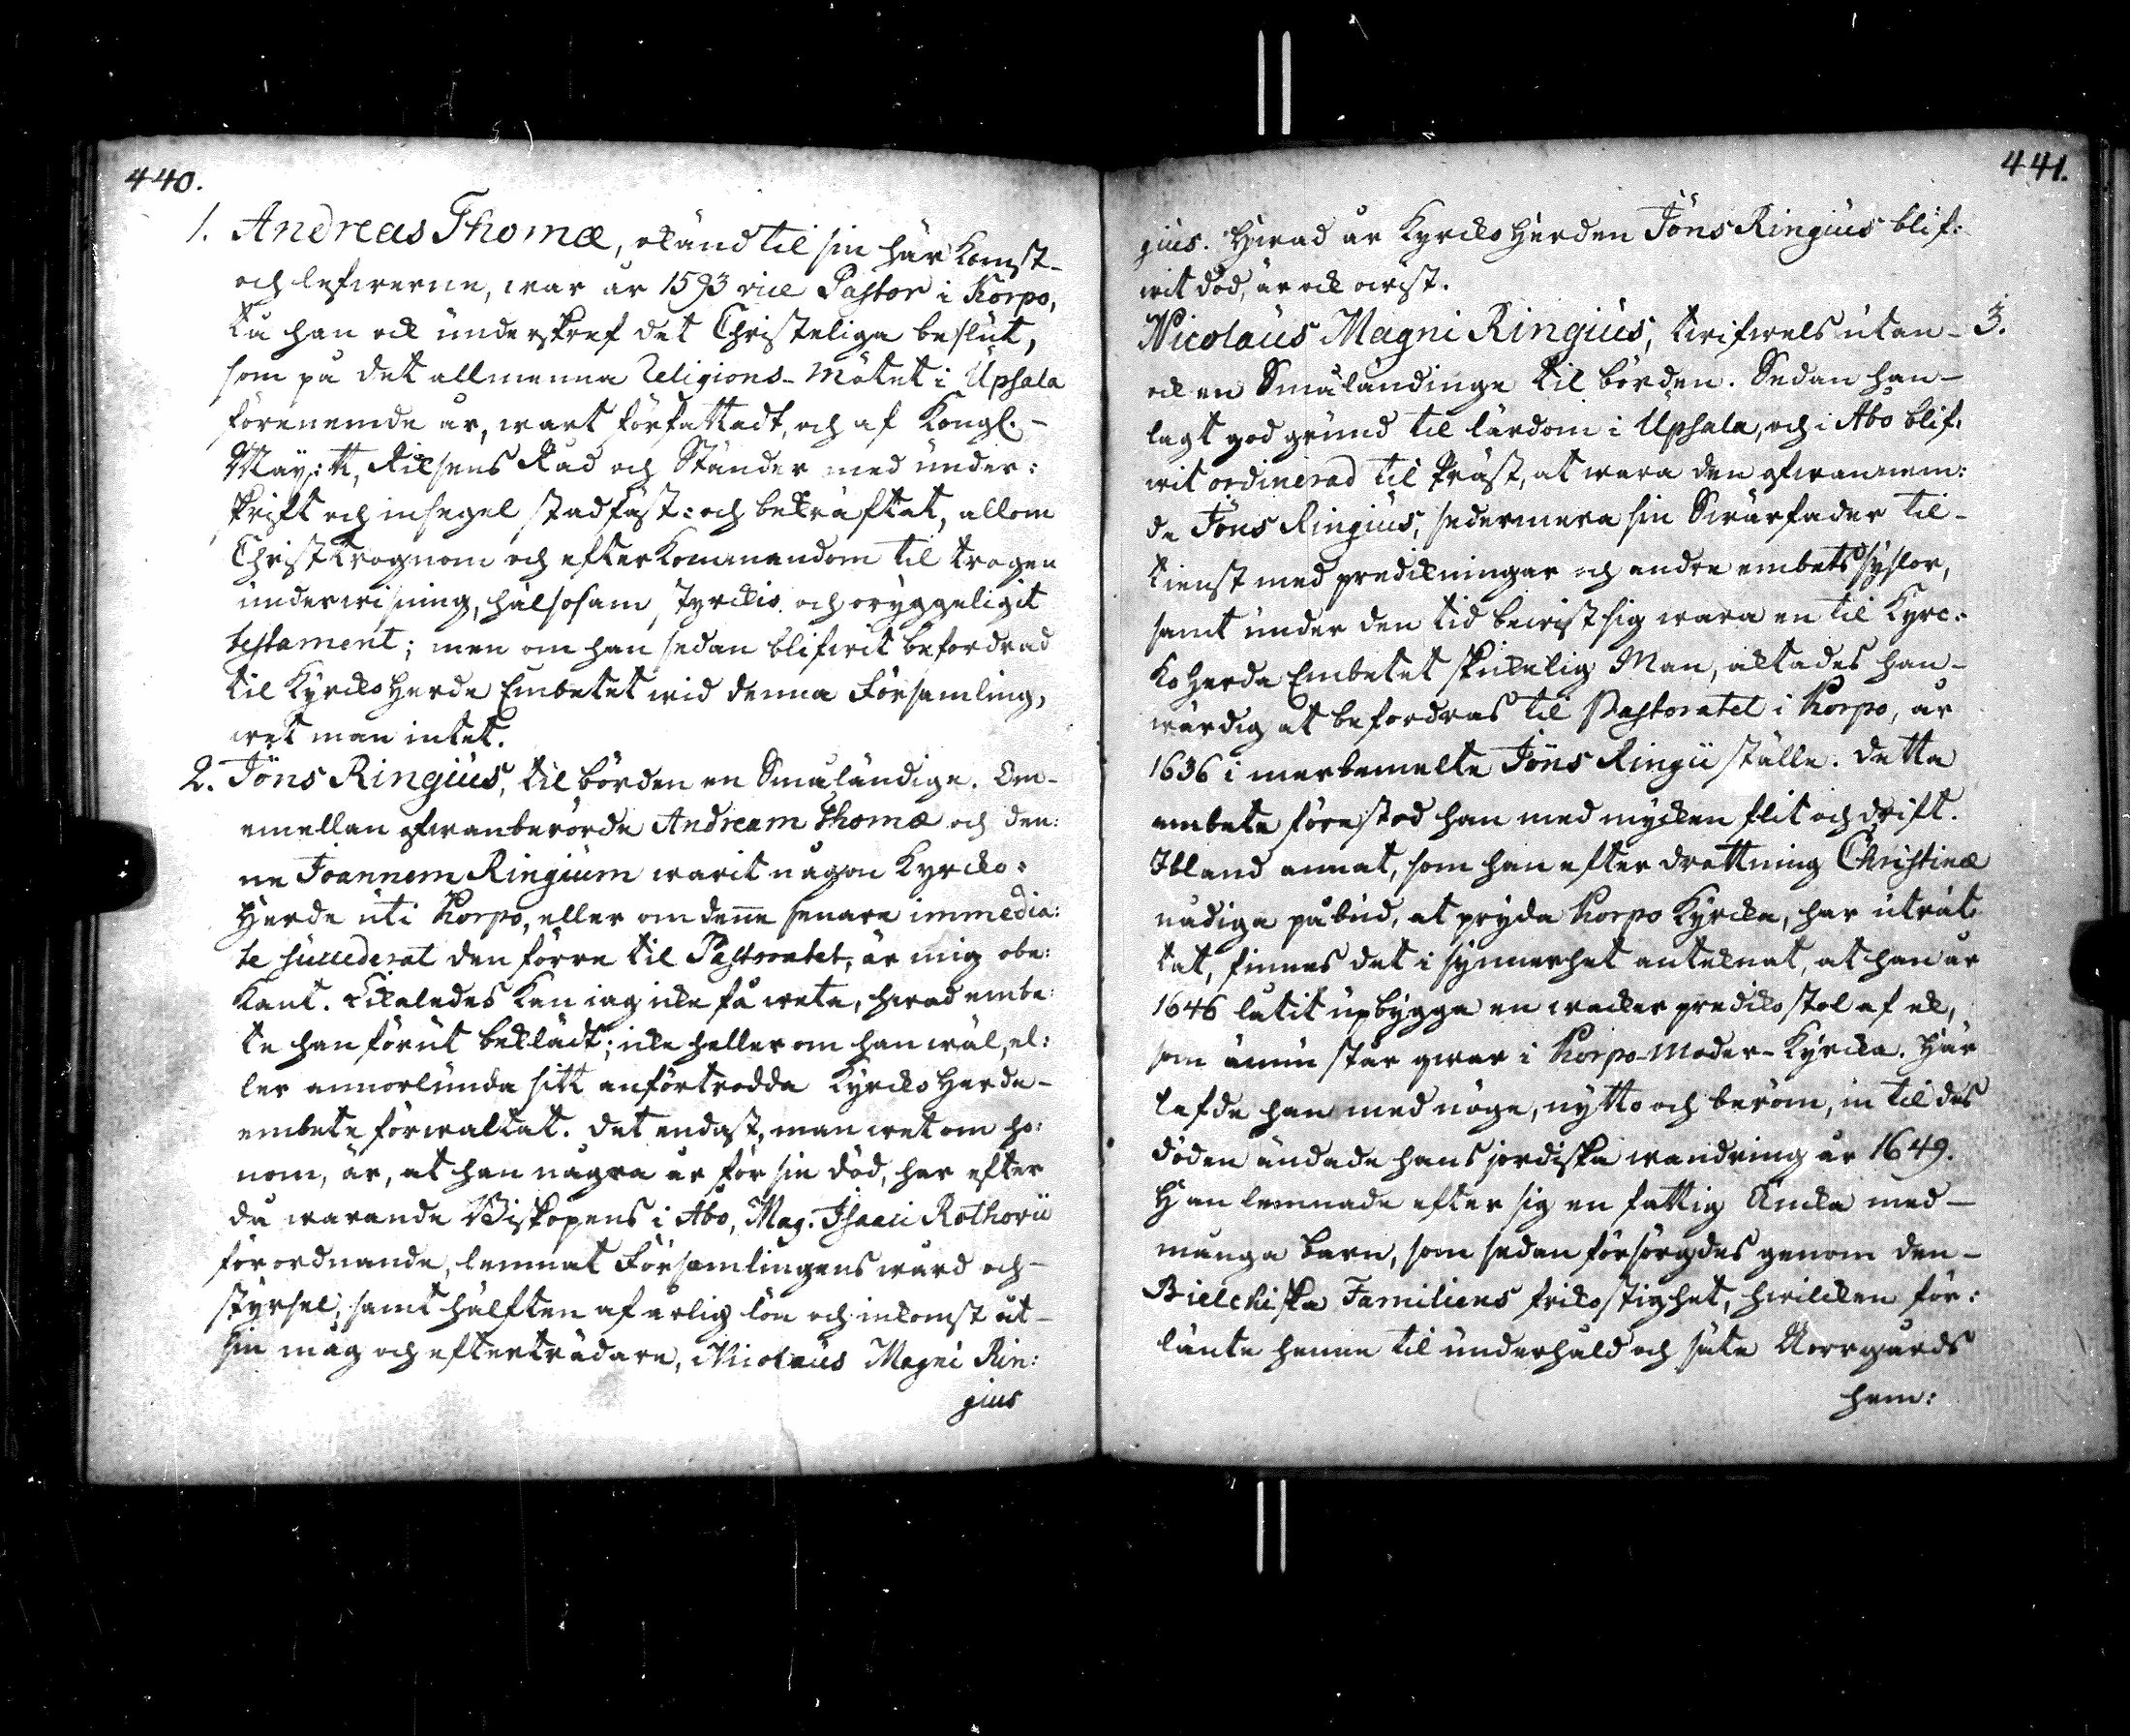 440.
1. Andreas Thomæ, okänd til sin här Komst-
och lefwerne, war år 1593 vice Pastor i Korpo,
tå han ock underskref det Christeliga beslut,
som på det allmenna Religions-Mötet i Upsala
förenemde år, wart författadt, och af Kongl.-
May:tt, Riksens Råd och Ständer med under:
skrift och insegel stadfäst: och bekräftat, allom
Christtrognom och efterkommandom til trogen
underwisning, hälsosam styrckio och oryggeligit
testament; men om han sedan blifwit befordrad
til KyrckoHerde Embetet wid denna Församling,
wet man intet.
2. Jöns Ringius, til börden en Småländige. Om-
emellan ofwanberörde Andream Thomæ och den:
ne Joannem Ringium warit någon Kyrcko:
Herde uti Korpo, eller om denne senare immedia:
te succederat den förre til Pastoratet, är mig obe:
kant. Likaledes kan iag icke få weta, hwad embe:
te han förut beklädt; icke heller om han wäl, el:
ler annorlunda sitt anförtrodda KyrckoHerde-
embete förwaltat. Det endast, man wet om ho:
nom, är, at han några år för sin död, har efter
då warande Biskopens i Åbo, Mag. Isaaci Rothovii
förordnande, lemnat Församlingens wård och-
styrsel, samt hälften af årlig lön och inkomst åt-
sin måg och efterträdare, Nicolaus Magni Rin:
gius
441.
gius. Hwad år KyrckoHerden Jöns Ringius blif:
wit död, är ock owist.
Nicolaus Magni Ringius, twifwels utan- 3.
ock en Småländinge til börden. Sedan han-
lagt god grund til lärdom i Upsala, och i Åbo blif:
wit ordinerad til Präst, at wara den ofwannem:
de Jöns Ringius, sedermera sin Swärfader til-
tienst med predikningar och andre embetssyslor,
samt under den tid bewist sig wara en til Kyrc:
koHerde Embetet skickelig Man, aktades han-
wärdig at befordras til Pastoratet i Korpo, år
1636 i merbemelte Jöns Ringii ställe. Detta
embete förestod han med mycken flit och drift.
Ibland annat, som han efter Drottning Christinæ
nådiga påbud, at pryda Korpo Kyrcka, har uträt:
tat, finnes det i synnerhet antecknat, at han år
1646 låtit upbygga en wacker predikostol af ek,
som ännu står qwar i Korpo-Moder-Kyrcka. Här
lefde han med nöge, nytto och beröm, in til des
döden ändade hans jordiska wandring år 1649.
Han lemnade efter sig en fattig Äncka med-
många barn, som sedan försörgdes genom den-
Bielchiska Familiens frikostighet, hwilcken för:
länte henne til underhåld och säte Norrgårds
hem: